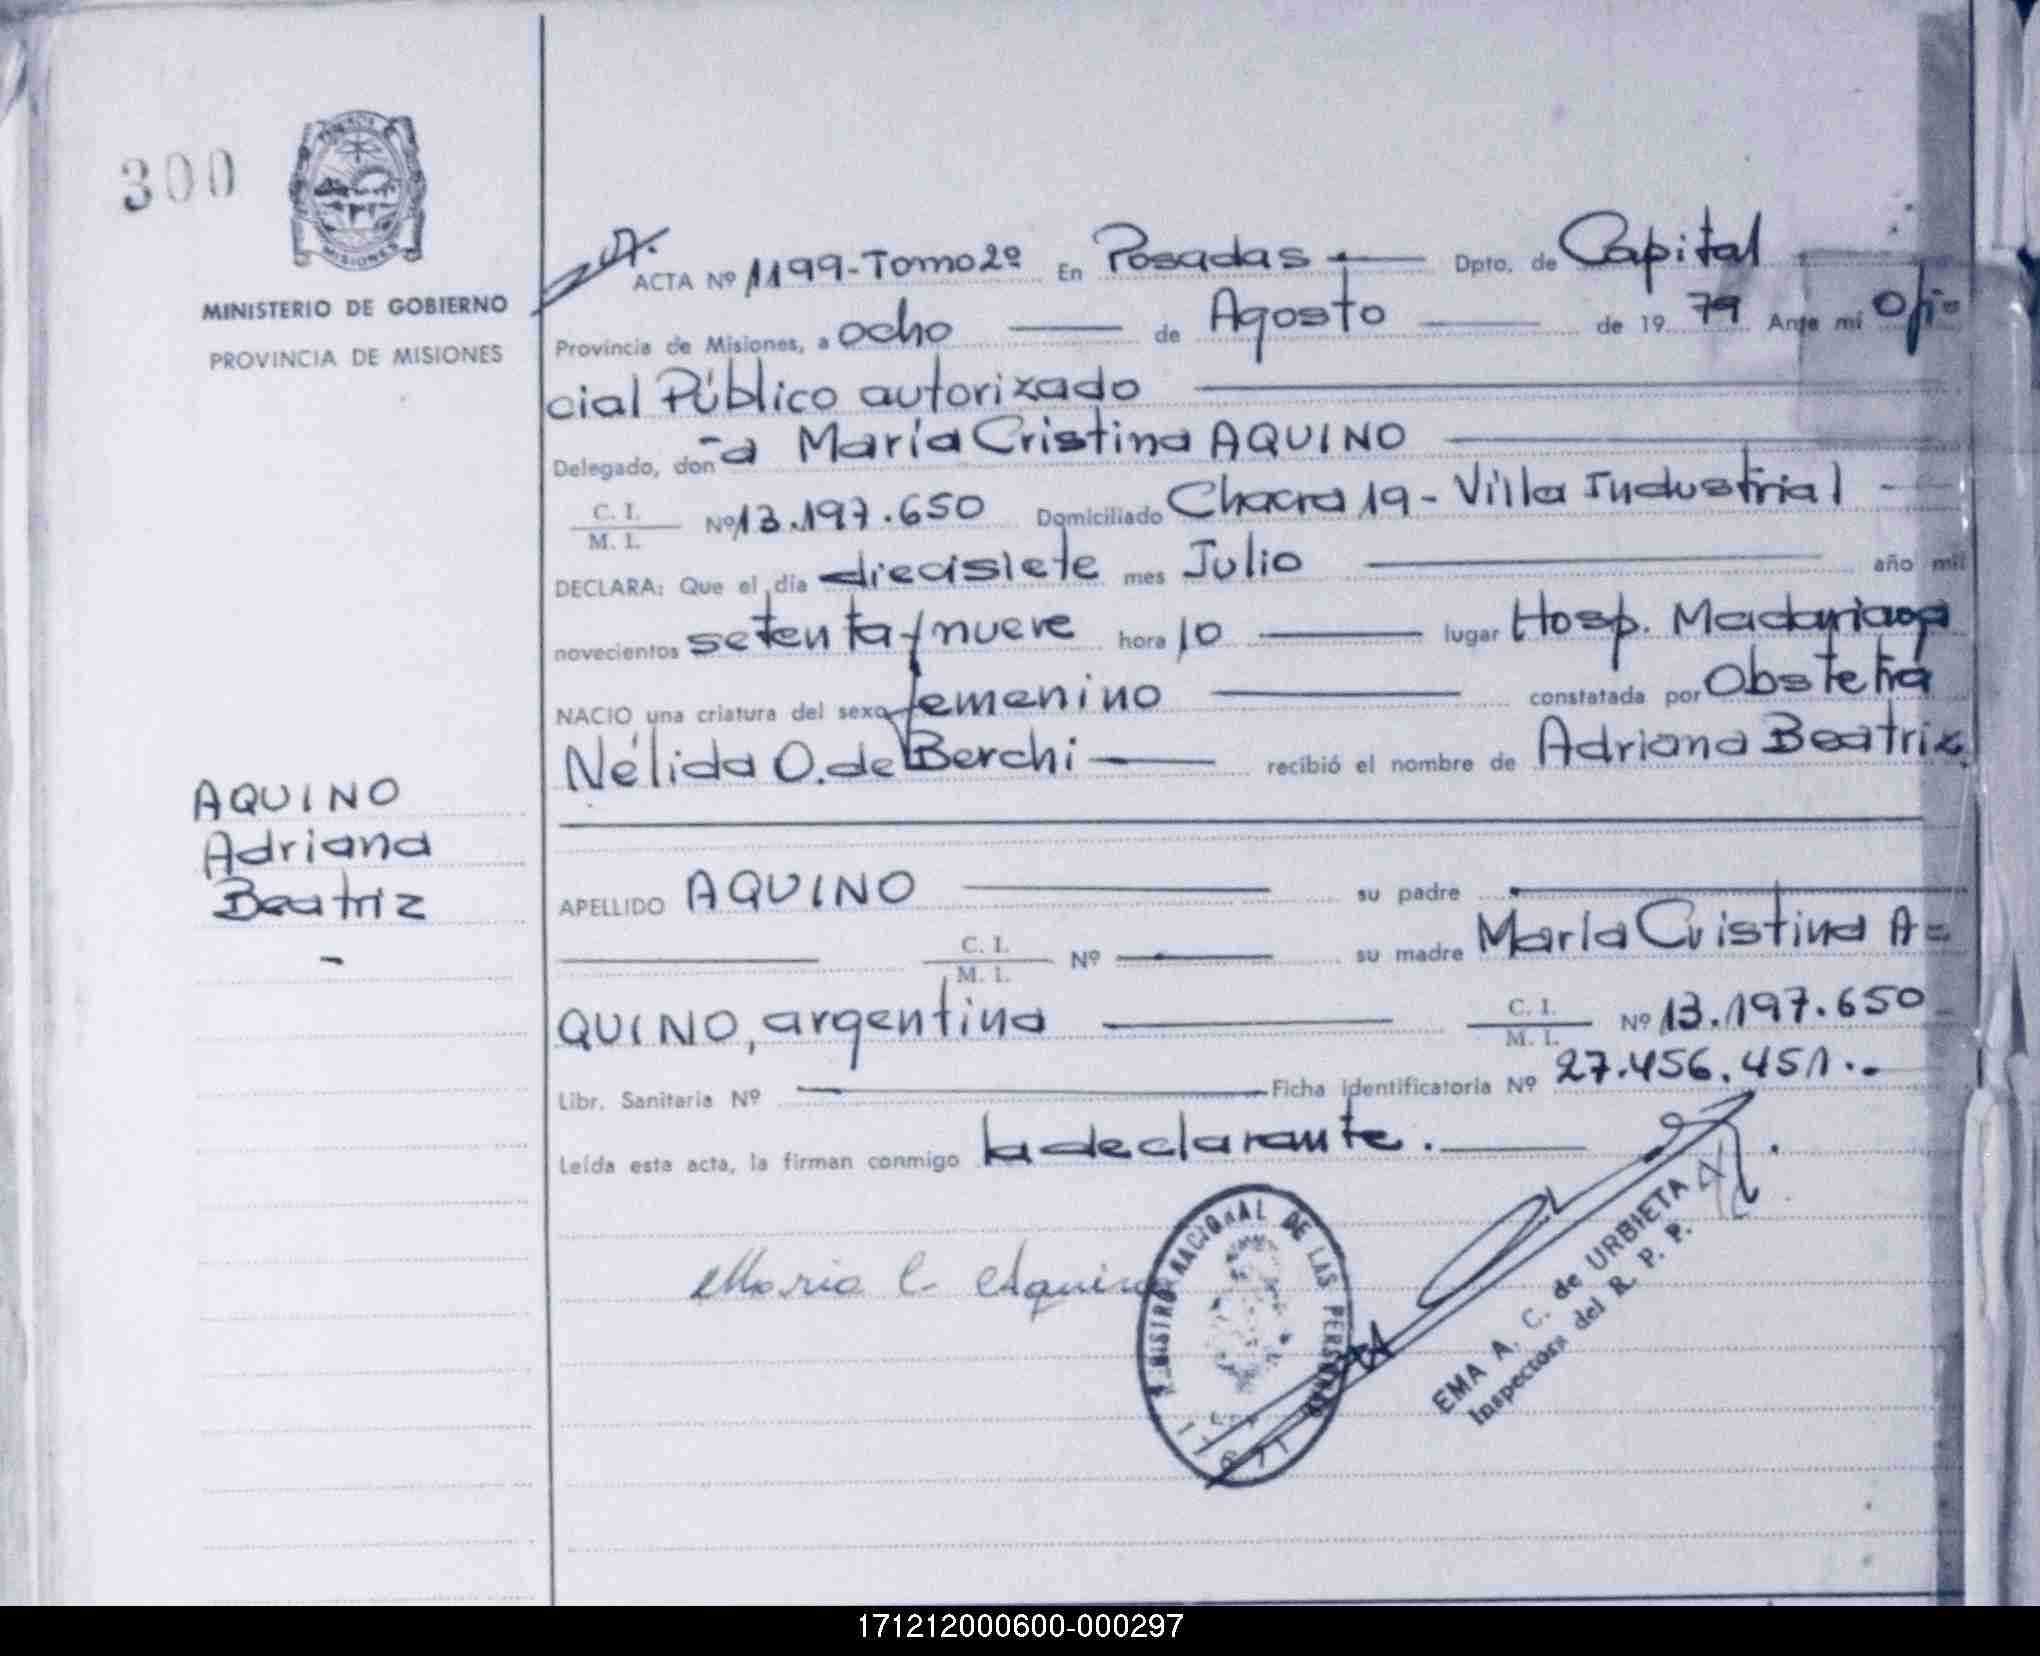 300
MISIONES
MINISTERIO DE GOBIERNO
PROVINCIA DE MISIONES
ACTA Nº 1199-Tomo 2º En Posadas Dpto. de Capital
Provincia de Misiones, a ocho de Agosto de 1979 Ante mí Ofi=
cial Público autorizado
Delegado, don-a María Cristina AQUINO
C. I.
M. I. Nº 13.197.650 Domiciliado Chacra 19 - Villa Industrial -
DECLARA: Que el día diecisiete mes Julio año mil
novecientos setenta y nueve hora 10 lugar Hosp. Madariaga
NACIO una criatura del sexo femenino constatada por Obstetra
Nélida O. de Berchi recibió el nombre de Adriana Beatriz
AQUINO
Adriana
Beatriz
-
APELLIDO AQUINO su padre
C. I.
M. I. Nº su madre María Cristina A=
QUINO, argentina C. I.
M. I. Nº 13.197.650
Libr. Sanitaria Nº Ficha identificatoria Nº 27.456.451.-
Leída esta acta, la firman conmigo la declarante.
Maria C. Aquino
REGISTRO NACIONAL DE LAS PERSONAS
EMA A. C. de URBIETA
Inspectora del R. P. P.
171212000600-000297